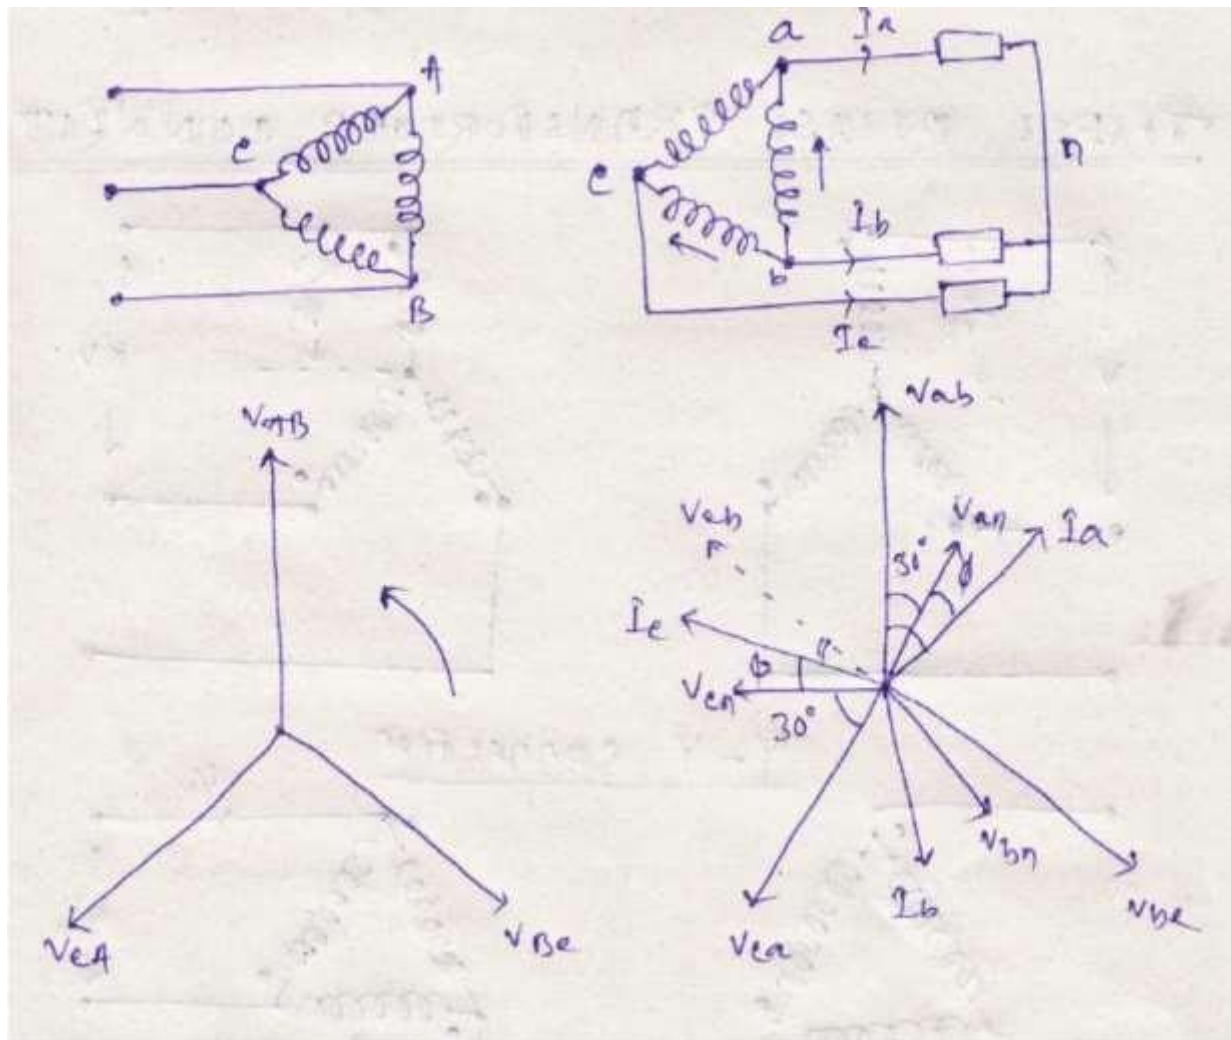 A
C
B
a
Ia
C
n
Ib
b
Ic
VAB
VCA
VBC
Vab
Vcb
30°
Van
Ia
Ic
φ
Vcn
30°
Vca
Ib
Vbn
Vbc